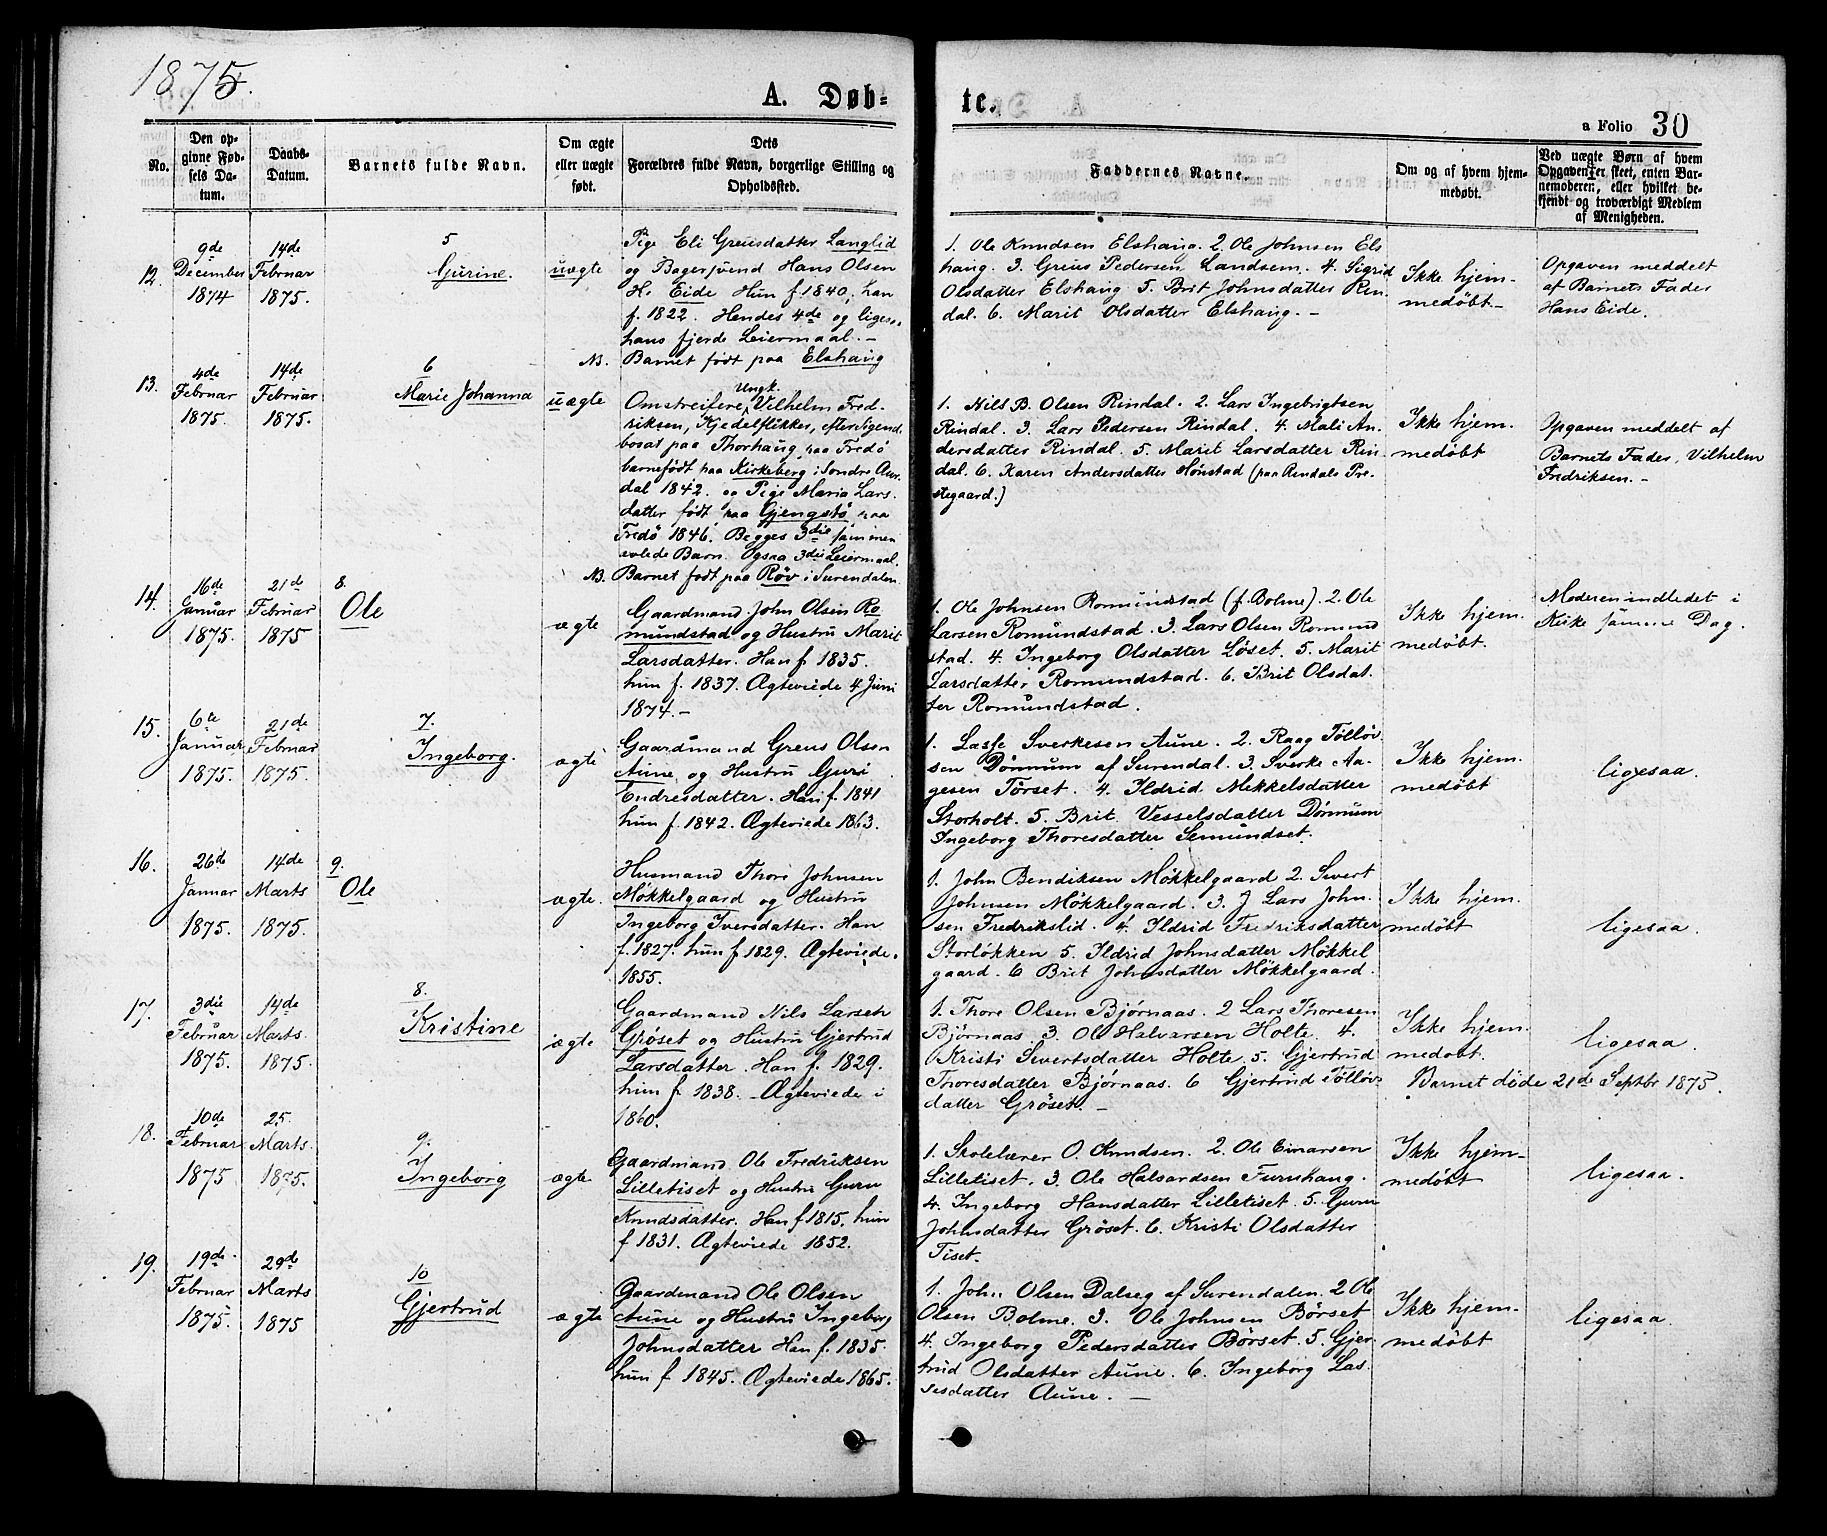 1875.
A. Døb-
te.
a Folio 30
No.
Den op-
givne Fød-
sels Da-
tum.
Daabs-
Datum.
Barnets fulde Navn.
Om ægte
eller uægte
født.
Dets
Forældres fulde Navn, borgerlige Stilling og
Opholdssted.
Faddernes Navne.
Om og af hvem hjem-
medøbt.
Ved uægte Børn af hvem
Opgaven er skeet, enten Bar-
nemoderen, eller hvilket be-
kjendt og troværdigt Medlem
af Menigheden.
12.
9de
December
1874
14de
Februar
1875.
5
Gurine.
uægte
Pige Eli Greusdatter Langlid
og Bagersvend Hans Olsen
H. Eide Hun f 1840, han
f. 1822. Hendes 4de og liges.
hans fjerde Leiermaal. –
NB. Barnet født paa Elshaug
1. Ole Knudsen Elshaug. 2. Ole Johnsen Els
haug. 3. Greus Pedersen Landsem. 4. Sigrid
Olsdatter Elshaug 5. Brit Johnsdatter Rin
dal. 6. Marit Olsdatter Elshaug. –
Ikke hjem-
medøbt. –
Opgaven meddelt
af Barnets Fader
Hans Eide.
13.
4de
Februar
1875.
14de
Februar
1875.
6
Marie Johanna
uægte
Ungk.
Omstreifere, Vilhelm Fred-
riksen, Kjedelflikker, efter Sigend.
bosat paa Thorhaug paa Fredø
barnefødt paa Kirkeberg i Søndre Aur
dal 1842. og Pige Maria Lars.
datter født paa Gjengstø paa
Fredø 1846. Begges 3die sammen
avlede Barn. Ogsaa 3die Leiermaal.
NB. Barnet født paa Røv i Surendalen
1. Nils B. Olsen Rindal. 2. Lars Ingebrigtsen
Rindal. 3. Lars Pedersen Rindal. 4. Mali An
dersdatter Rindal. 5. Marit Larsdatter Rin
dal. 6. Karen Andersdatter Hønstad (paa Rindals Pre
stegaard.)
Ikke hjem.
medøbt
Opgaven meddelt af
Barnets Fader, Vilhelm
Fredriksen. –
14.
16de
Januar
1875.
21de
Februar
1875
8.
Ole
ægte
Gaardmand John Olsen Ro
mundstad og Hustru Marit
Larsdatter. Han f 1835.
hun f. 1837. Ægteviede 4 Juni
1874. –
1. Ole Johnsen Romundstad (f. Bolme). 2. Ole
Larsen Romundstad. 3. Lars Olsen Romund
stad. 4. Ingeborg Olsdatter Løset. 5. Marit
Larsdatter Romundstad. 6. Brit Olsdat
ter Romundstad.
Ikke hjem.
medøbt.
Moderen indledet i
Kirke samme Dag.
15.
6te
Januar
1875.
21de
Februar
1875.
7.
Ingeborg.
ægte
Gaardmand Greus Olsen
Aune og Hustru Guri
Endresdatter. Han f. 1841
hun f. 1842. Ægteviede 1863.
1. Lasse Sverkesen Aune. 2. Raag Tølløv
sen Dønnum af Surendal. 3. Sverke Aa-
gesen Tørset. 4. Ildrid Mekkelsdatter
Storholt. 5. Brit Vesselsdatter Dønnum
Ingeborg Thoresdatter Semundset.
Ikke hjem.
medøbt
ligesaa.
16.
26de
Januar
1875.
14de
Marts
1875.
9.
Ole
ægte.
Husmand Thore Johnsen
Møkkelgaard og Hustru
Ingeborg Iversdatter. Han
f. 1827. hun f 1829. Ægteviede.
1855.
1. John Bendiksen Møkkelgaard 2. Sivert
Johnsen Møkkelgaard. 3. J Lars John.
sen Fredrikslid. 4. Ildrid Fredriksdatter
Storløkken 5. Ildrid Johnsdatter Møkkel
gaard. 6 Brit Johnsdatter Møkkelgaard.
Ikke hjem.
medøbt
ligesaa.
17.
3die
Februar
1875.
14de
Marts.
1875.
8.
Kristine
ægte
Gaardmand Nils Larsen
Grøset og Hustru Gjertrud
Larsdatter. Han f. 1829.
hun f 1838. Ægteviede i
1860.
1. Thore Olsen Bjørnaas. 2 Lars Thoresen
Bjørnaas. 3. Ole Halvarsen Holte. 4.
Kristi Sivertsdatter Holte. 5. Gjertrud
Thoresdatter Bjørnaas. 6 Gjertrud Tølløvs
datter Grøset. –
Ikke hjem.
medøbt.
ligesaa.
Barnet døde 21de Septbr 1875.
18.
10de
Februar
1875
25.
Marts.
1875.
9.
Ingeborg
ægte
Gaardmand Ole Fredriksen
Lilletiset og Hustru Guru
Knudsdatter. Han f 1815, hun
f 1831. Ægteviede 1852.
1. Skolelærer O. Knudsen. 2. Ole Einarsen
Lilletiset. 3. Ole Halvardsen Furuhaug.
4. Ingeborg Hansdatter Lilletiset. 5. Guru
Johnsdatter Grøset. 6. Kristi Olsdatter
Tiset.
Ikke hjem-
medøbt
ligesaa.
19.
19de
Februar
1875.
29de
Marts
1875
10
Gjertrud
ægte
Gaardmand Ole Olsen
Aune og Hustru Ingeborg
Johnsdatter Han f. 1835.
hun f 1845. Ægteviede 1865.
1. John Olsen Dalseg af Surendalen. 2 Ole
Olsen Bolme. 3. Ole Johnsen Børset
4. Ingeborg Pedersdatter Børset. 5. Gjer
trud Olsdatter Aune. 6. Ingeborg Las
sesdatter Aune. –
Ikke hjem-
medøbt
ligesaa.